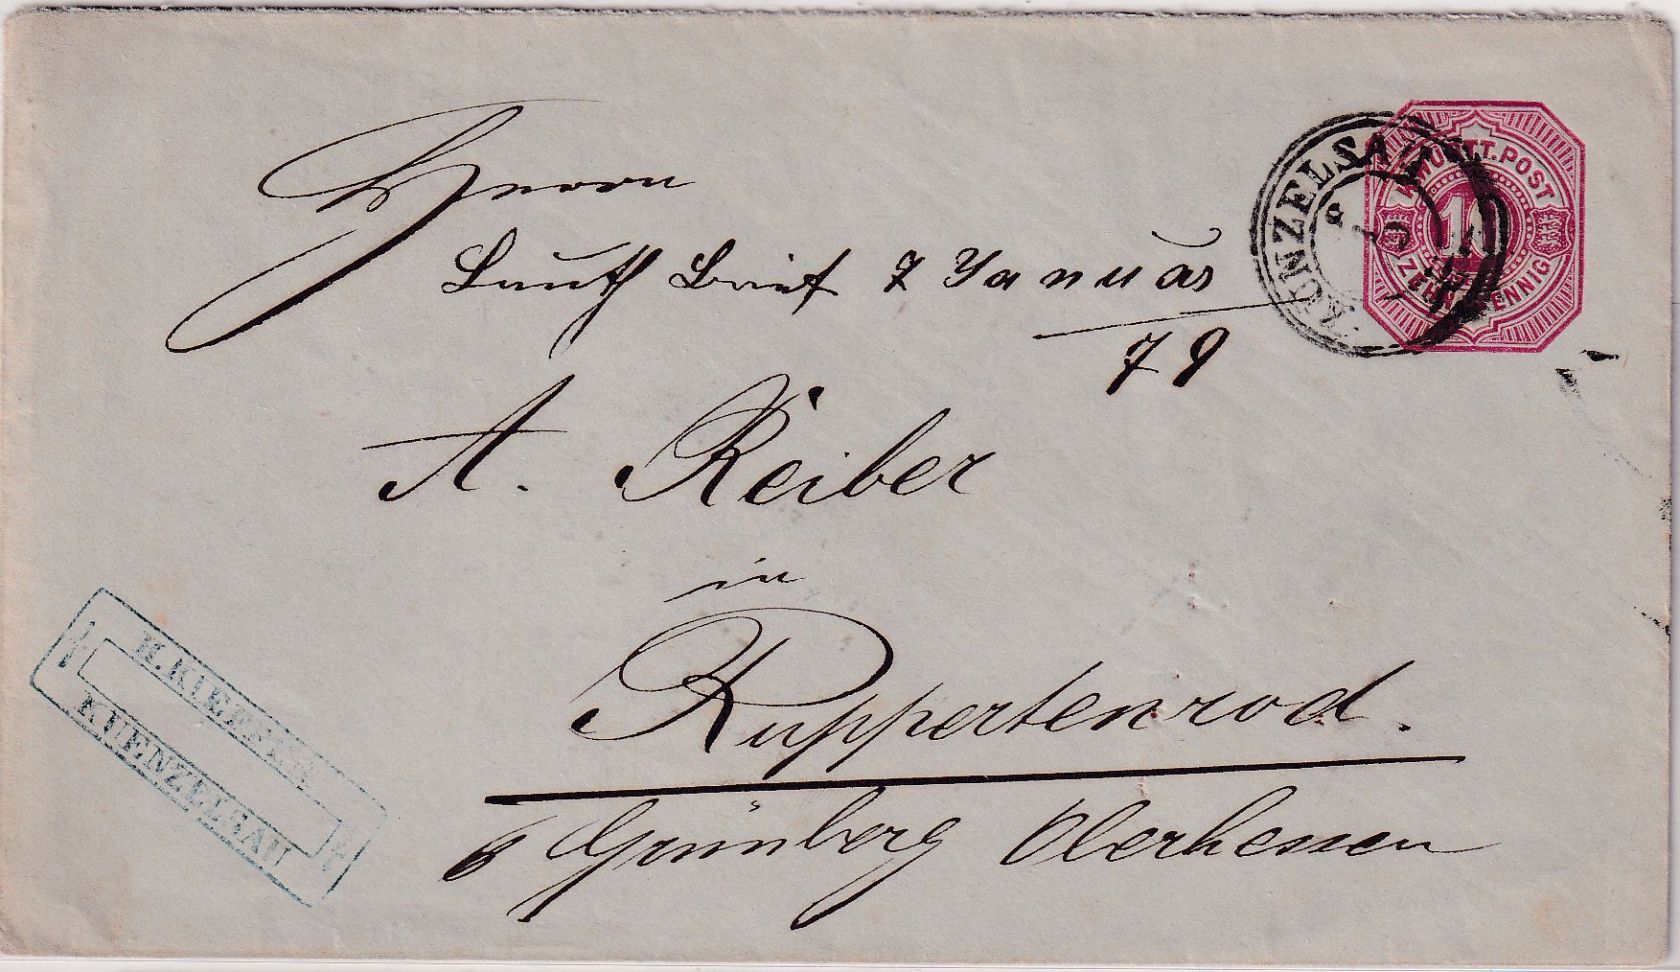 Herrn
Lauth Brief 7 Januar
79
A. Reiber
in
Ruppertenrod.
b Grünberg Oberhessen
KÜNZELSAU
K.WÜRTT.POST
10
ZEHN PFENNIG
KUENZELSAU